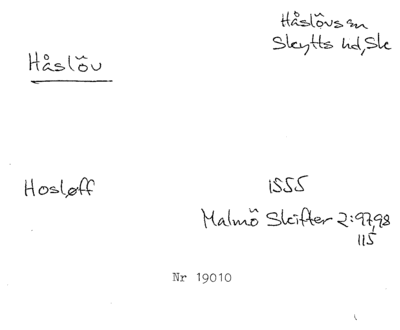 Håslövs sn
Skytts hd, Sk
Håslöv
Hosløff 1555
Malmö Skifter 2:97,98
115
Nr 19010